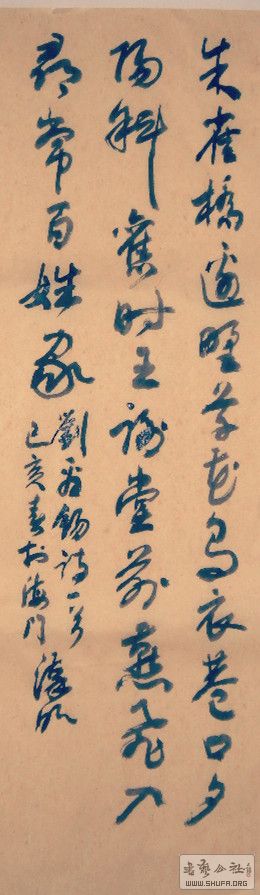 朱雀橋邊野草花烏衣巷口夕
陽斜舊時王謝堂前燕飛入
尋常百姓家
劉禹錫詩一首
己亥春於海門
书艺公社
WWW.SHUFA.ORG